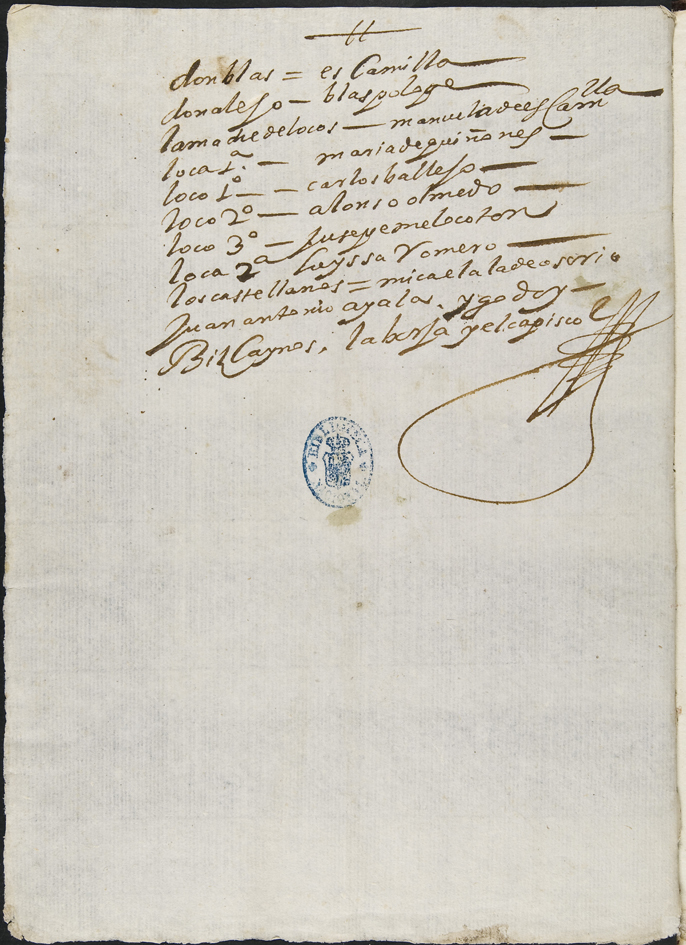 don blas = escamilla
don alejo - blas polope
la madre de locos - manuela de escamilla
loca 1ª - maria de quiñones
loco 1º - carlos ballejo
loco 2º - alonso olmedo
loco 3º - jusepe melocoton
loca 2ª luyssa Romero
los castellanos = micaela la de osorio
juan antonio ayalas, y godoy
Bizcaynos, la borja y el capisco
BIBLIOTECA